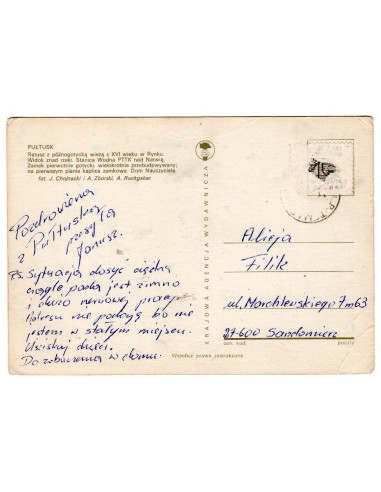 PUŁTUSK
Ratusz z późnogotycką wieżą z XVI wieku w Rynku.
Widok znad rzeki. Stanica Wodna PTTK nad Narwią.
Zamek pierwotnie gotycki, wielokrotnie przebudowywany;
na pierwszym planie kaplica zamkowa. Dom Nauczyciela.
fot. J. Chojnacki i A. Zborski, A. Rustgeber
Pozdrowienia
z Pułtuska
przesyła
Janusz.
Ps. Sytuacja dosyć ciężka
ciągle pada jest zimno
i dużo nerwowej pracy
Adresu nie podaję bo nie
jestem w stałym miejscu.
Uściskaj dzieci.
Do zobaczenia w domu.
KRAJOWA AGENCJA WYDAWNICZA
Alicja
Filik
ul. Marchlewskiego 7m63
27-600 Sandomierz
ozn. kod.
poczta
Wszelkie prawa zastrzeżone